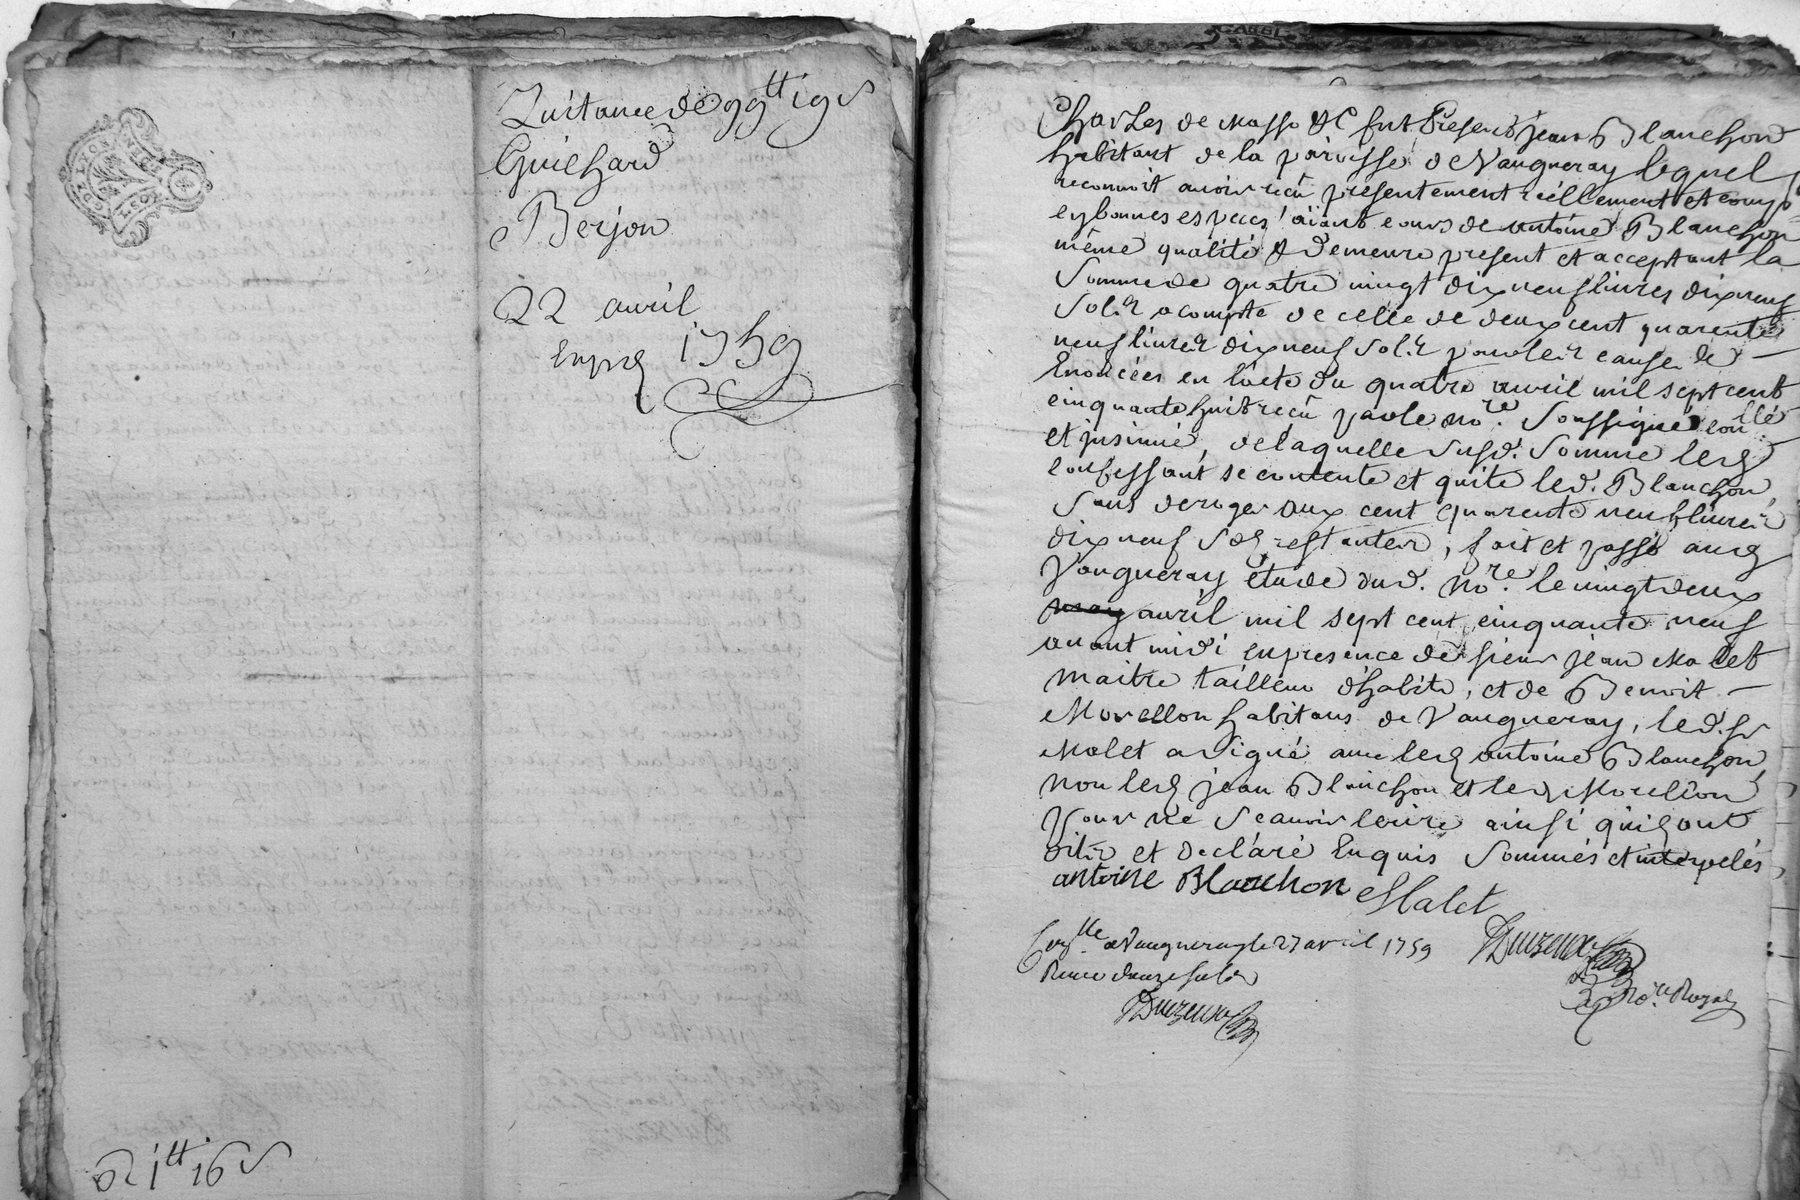 Quitance de 99tt 19s
Guichard
Berjon
22 avril
1759
1tt 16s
Charles de Masso &c fut présent jean Blanchon
habitant de la paroisse de Vaugneray lequel
reconnoit avoir reçu présentement réellement et comp
en bonnes especes aïant cours de antoine Blanchon
même qualité & demeure present et acceptant la
Somme de quatre vingt dix neuf livres dix neuf
sols acompte de celle de deux cent quarente
neuf livres dix neuf sols pour les causes
Enoncées en l'acte du quatre avril mil sept cent
cinquante huit reçu par le no.re soussigné con.llé
et jnsinué, de laquelle susd. Somme led
confessant se contente et quite led. Blanchon,
Sans deroger aux cent quarente neuf livres
dix neuf sols restantes, fait et passé aud
Vaugneray étude dud. no.re le vingt deux
may avril mil sept cent cinquante neuf
avant midi en presence de sieur jean Malet
maitre tailleur d'habits, et de Benoit
Morellon habitans de Vaugneray, led. sr
Malet a signé avec led antoine Blanchon,
non led jean Blanchon et led Morellon
pour ne scavoir écrire ainsi qu'ils ont
dit et declaré Enquis Sommés et interpelés
antoine Blanchon Malet
Con.lle a Vaugneray le 27 avril 1759
Reçu douze sols
No.re Royal